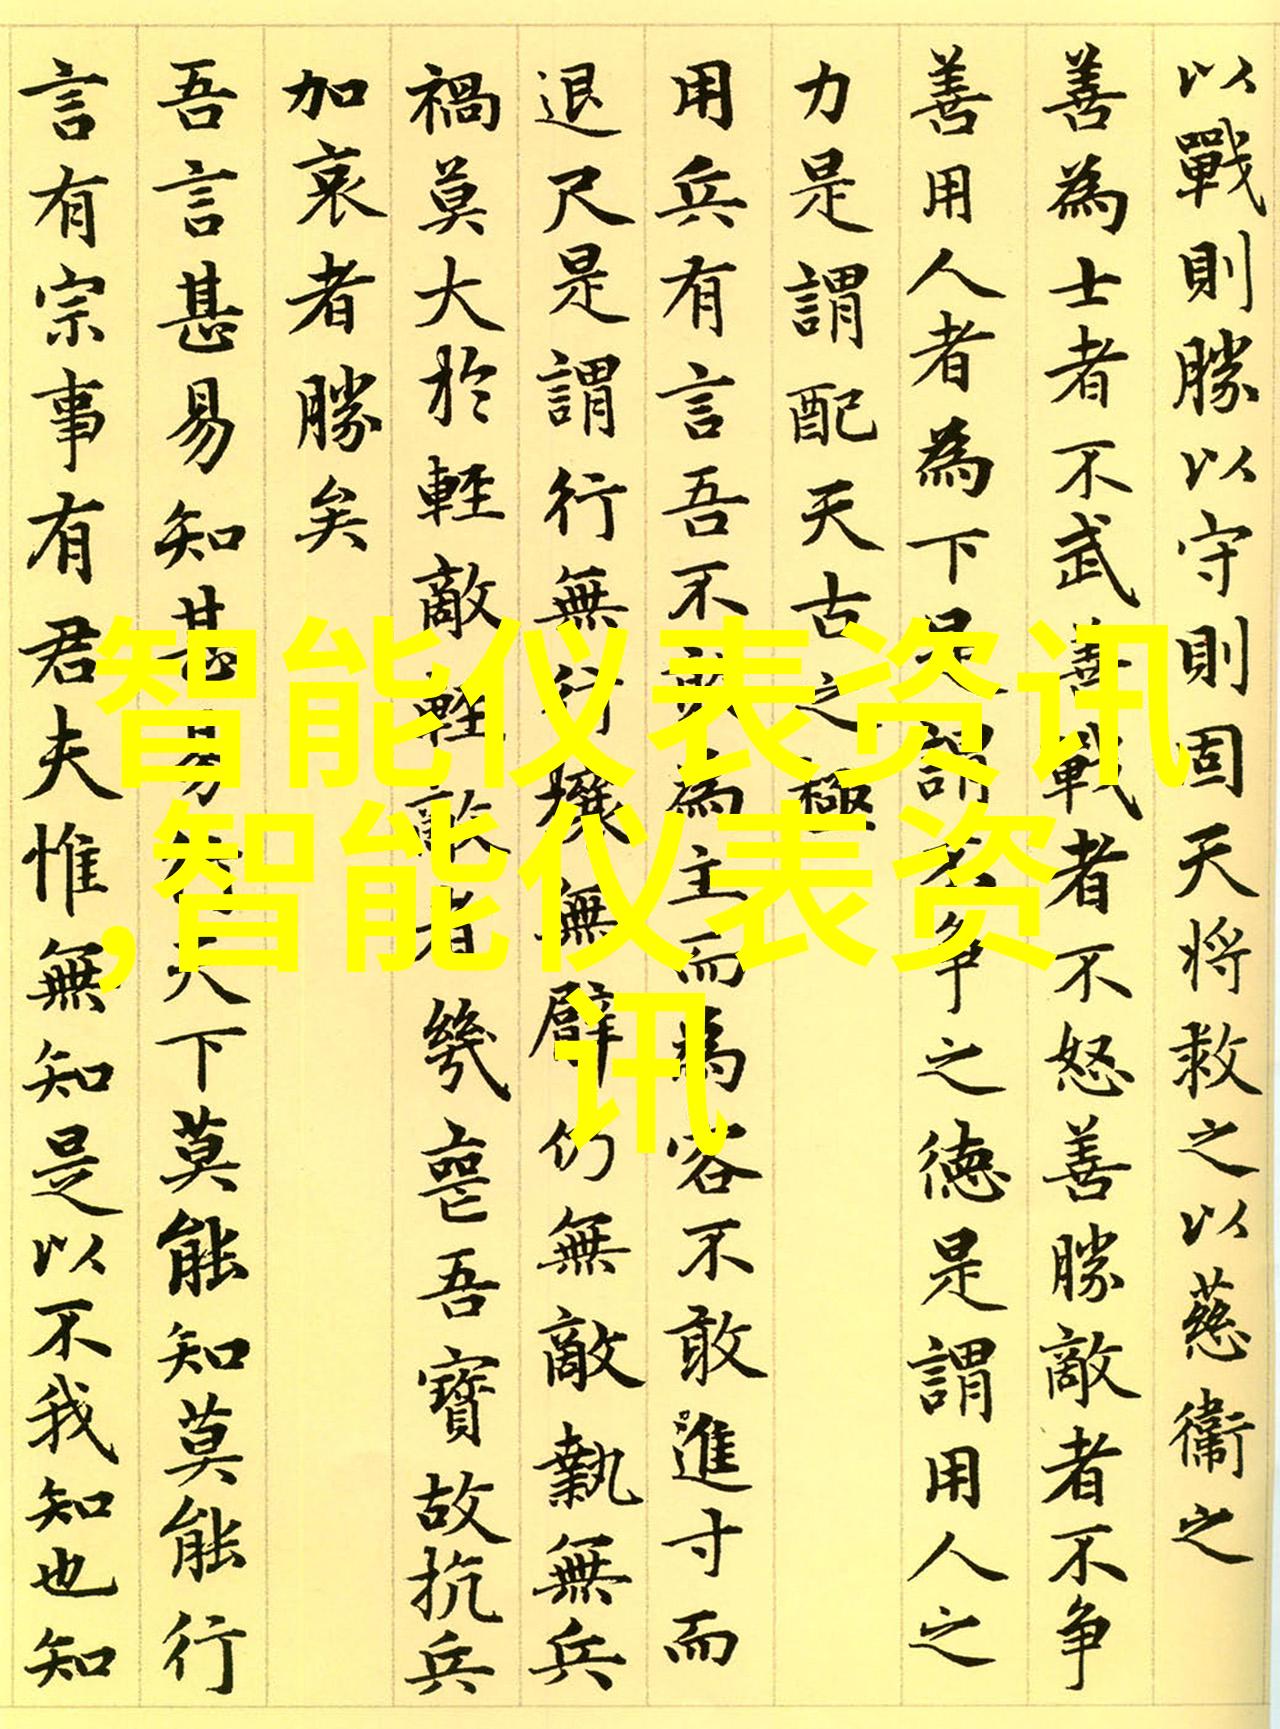 以戰則勝以守則固天將救之以慈衛之
善為士者不武善戰者不怒善勝敵者不争
善用人者為下是謂不争之德是謂用人之
力是謂配天古之極
用兵有言吾不敢為主而為客不敢進寸而
退尺是謂行無行攘無臂仍無敵執無兵
禍莫大於輕敵輕敵者幾喪吾寶故抗兵
加哀者勝矣
吾言甚易知甚易行天下莫能知莫能行
言有宗事有君夫惟無知是以不我知也知
智能仪表资讯
,智能仪表资
讯